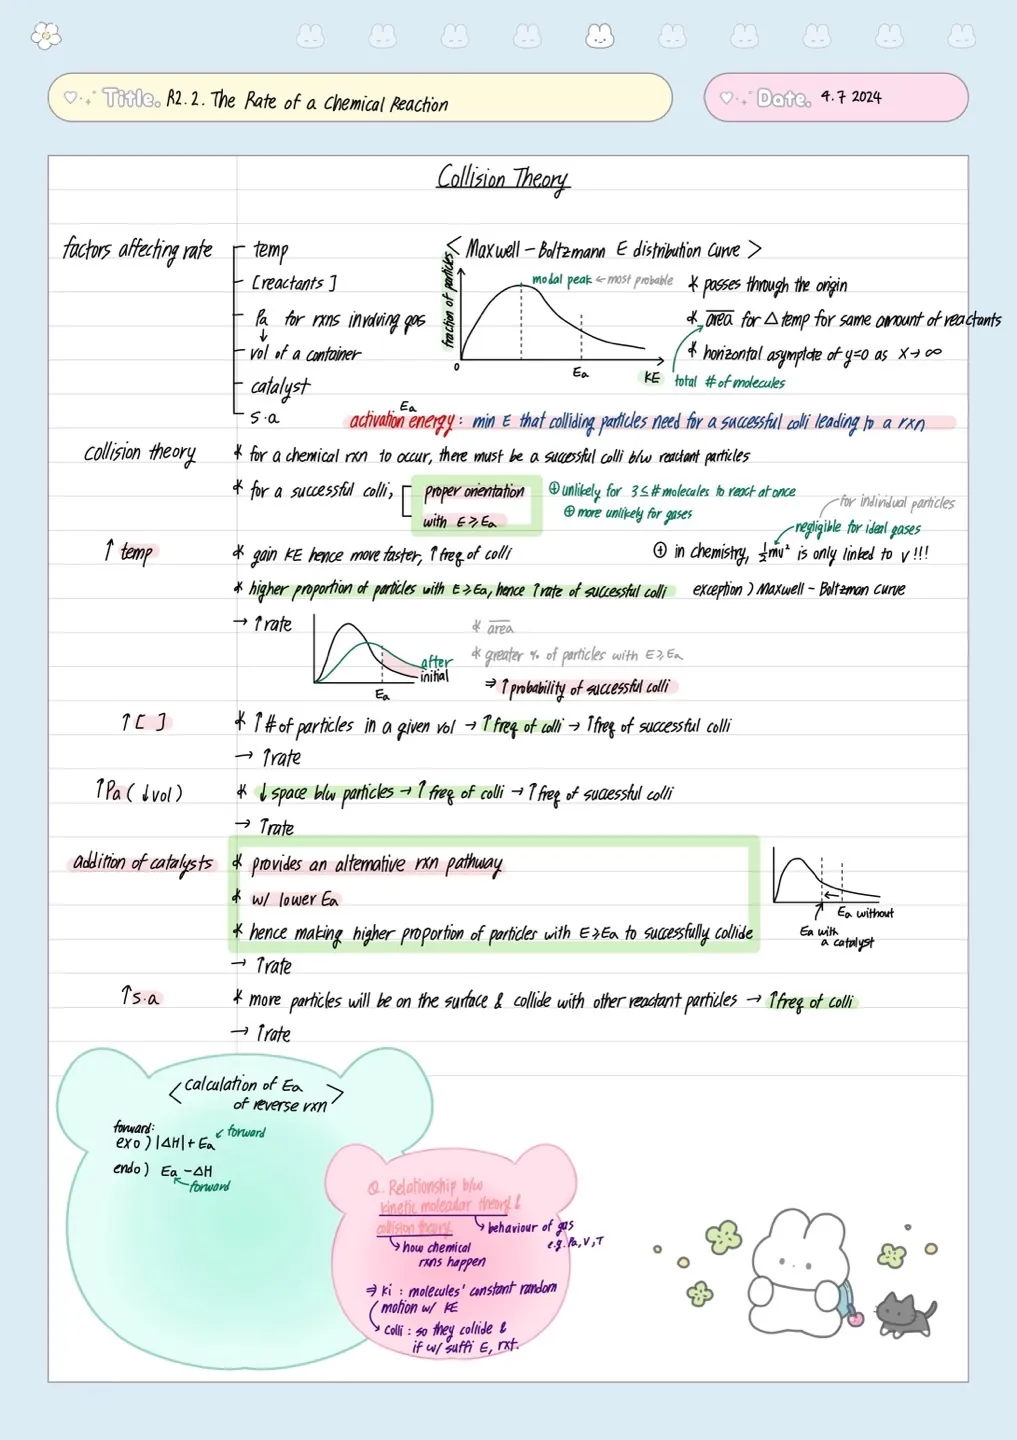 Title. R2.2. The Rate of a Chemical Reaction
Date. 4.7 2024
Collision Theory
factors affecting rate
temp
[reactants]
Pa for rxns involving gas
↓
vol of a container
catalyst
s.a
< Maxwell - Boltzmann E distribution Curve >
fraction of particles
modal peak ← most probable
0
Ea
KE
* passes through the origin
* area for Δtemp for same amount of reactants
* horizontal asymplote of y=0 as x → ∞
total # of molecules
Ea
activation energy : min E that colliding particles need for a successful colli leading to a rxn
collision theory
* for a chemical rxn to occur, there must be a successful colli b/w reactant particles
* for a successful colli,
proper orientation
with E ≥ Ea
⊕ unlikely for 3 ≤ # molecules to react at once
⊕ more unlikely for gases
for individual particles
negligible for ideal gases
↑ temp
* gain KE hence move faster, ↑ freq of colli
⊕ in chemistry, ½mv² is only linked to v !!!
* higher proportion of particles with E ≥ Ea, hence ↑ rate of successful colli
exception ) Maxwell - Boltzman Curve
→ ↑ rate
after
initial
Ea
* area
* greater % of particles with E ≥ Ea
⇒ ↑ probability of successful colli
↑ [ ]
* ↑ # of particles in a given vol → ↑ freq of colli → ↑ freq of successful colli
→ ↑ rate
↑ Pa ( ↓ vol )
* ↓ space b/w particles → ↑ freq of colli → ↑ freq of successful colli
→ ↑ rate
addition of catalysts
* provides an alternative rxn pathway
* w/ lower Ea
* hence making higher proportion of particles with E ≥ Ea to successfully collide
→ ↑ rate
Ea without
Ea with
a catalyst
↑ s.a
* more particles will be on the surface & collide with other reactant particles → ↑ freq of colli
→ ↑ rate
< calculation of Ea
of reverse rxn >
forward:
exo ) |ΔH| + Ea ← forward
endo ) Ea - ΔH
forward
Q. Relationship b/w
kinetic molecular theory &
collision theory.
behaviour of gas
e.g. Pa, V, T
how chemical
rxns happen
⇒ ki : molecules' constant random
motion w/ KE
colli : so they collide &
if w/ suffi E, rxt.